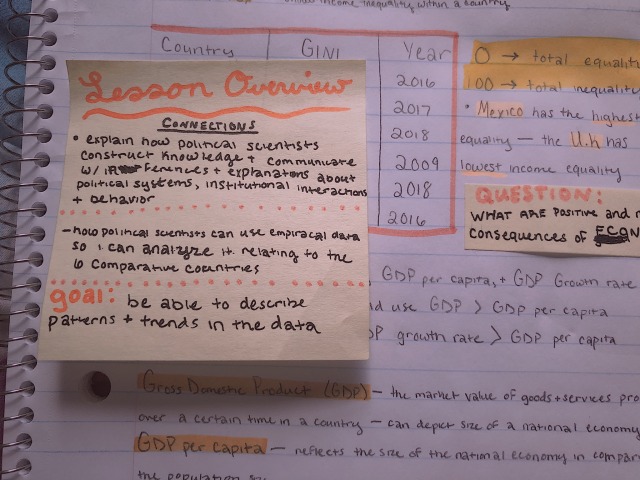 income inequality within a country
Country GINI Year
2016
2017
2018
2009
2018
2016
0 → total equality
100 → total inequality
• Mexico has the highest
equality — the U.K has
lowest income equality
QUESTION:
WHAT ARE POSITIVE and
consequences of ECON
Lesson Overview
CONNECTIONS
• explain how political scientists
construct knowledge + communicate
w/ ferences + explanations about
political systems, institutional interactions
+ behavior
- how political scientists can use empiracal data
so i can analyze it relating to the
6 comparative countries
goal: be able to describe
patterns + trends in the data
GDP per capita, + GDP Growth rate
d use GDP > GDP per capita
DP growth rate > GDP per capita
Gross Domestic Product (GDP) — the market value of goods + services pro
over a certain time in a country — can depict size of a national economy
GDP per capita — reflects the size of the national economy in compar
the population